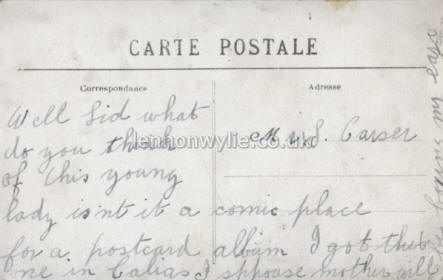 CARTE POSTALE
Correspondance
Adresse
Well Sid what
do you think
of this young
lady isnt it a comic place
for a postcard album I got this
ne in Calias I sphouse mother will
M S. Carser
lenhonwylie.co.uk
my